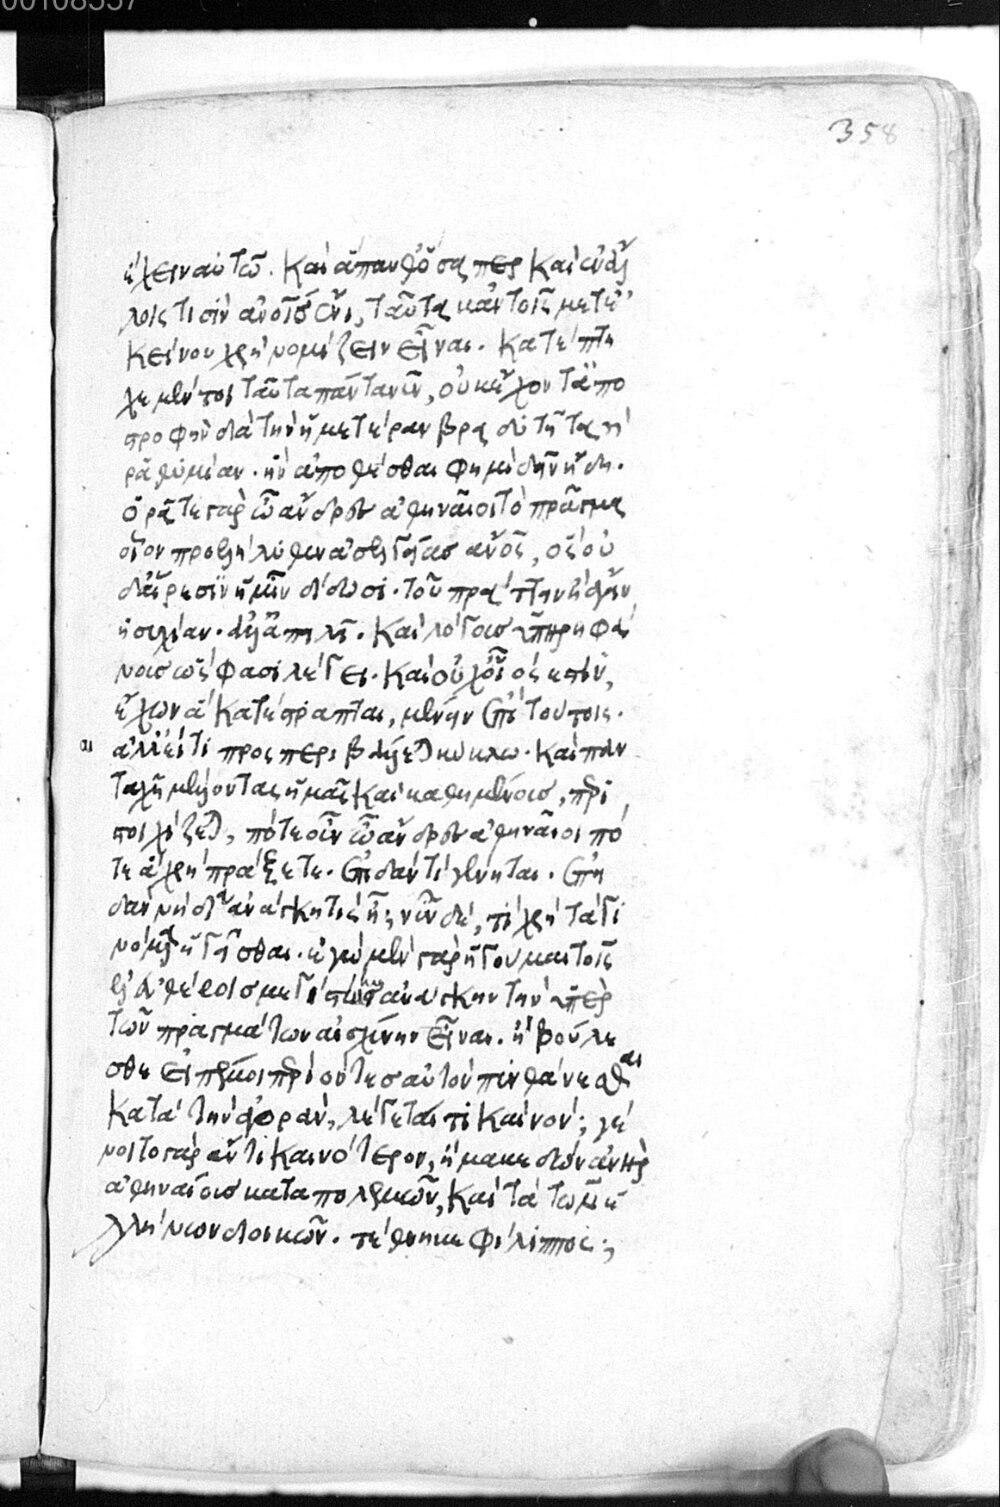 00108557
358
ἔχειν αὐτῷ. καὶ ἅπανθ' ὅσα περ καὶ ἐν ἄλ
λοις τισὶν ἀν οις ἔνι, ταῦτα κἂν τοῖς μετ' ἐ
κείνου χρὴ νομίζειν εἶναι. κατέπτη
χε μέντοι ταῦτα πάντα νῦν, οὐκ ἔχοντ' ἀπο
στροφὴν διὰ τὴν ἡμετέραν βραδυτῆτα κ
ῥαθυμίαν. ἣν ἀποθέσθαι φημὶ δεῖν ἤδη.
ὁρᾶτε γὰρ ὦ ἄνδρες ἀθηναῖοι τὸ πρᾶγμα
οἷον προεληλύθεν ἀσελγείας ἄνος, ὃς οὐ
δ' αἵρεσιν ἡμῖν δίδωσι. τοῦ πράττειν ἢ ἄγειν
ἡσυχίαν. ἀλλ' ἀπειλεῖ. καὶ λόγους ὑπερηφά
νους ὥς φασι λέγει. καὶ οὐχ οἷός ἐστιν,
ἔχων ἃ κατέστραπται, μένειν ἐπὶ τούτοις.
αι
ἀλλ' ἔτι προσπεριβάλλετ κύκλω. καὶ παν
ταχῆ μέλλοντας ἡμᾶς καὶ καθημένους, περι
στοιχίζετ, πότε οὖν ὦ ἄνδρες ἀθηναῖοι πό
τε ἃ χρὴ πράξετε. ἐπειδάν τι γένηται. ἐπει
δὰν νὴ δί' ἀνάγκη τις ᾖ; νῦν δὲ, τί χρὴ τὰ γι
νόμενα ἡγεῖσθαι. ἐγὼ μὲν γὰρ ἡγοῦμαι τοῖς
ἐλευθέροις μεγίστην ἀνάγκην τὴν ὑπὲρ
τῶν πραγμάτων αἰσχύνην εἶναι. ἢ βούλε
σθε εἰπέ μοι περιιόντες αὐτῶν πυνθάνεσθαι
κατὰ τὴν ἀγορὰν, λέγεταί τι καινόν; γέ
νοιτο γὰρ ἄν τι καινότερον, ἢ μακεδὼν ἀνὴρ
ἀθηναίους καταπολεμῶν, καὶ τὰ τῶν ἑλ
λήνων διοικῶν. τέθνηκε φίλιππος;